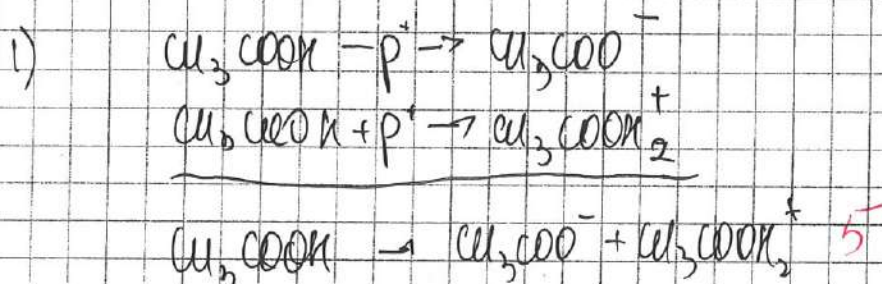 1) CH₃COOH − p⁺ → CH₃COO⁻
CH₃COOH + p⁺ → CH₃COOH₂⁺
CH₃COOH → CH₃COO⁻ + CH₃COOH₂⁺ 5